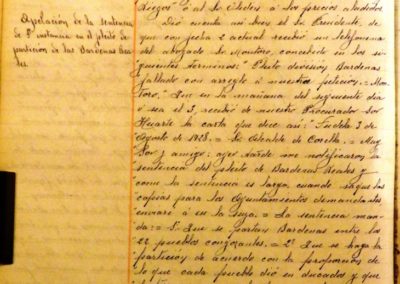 Apelación de la sentencia
de 1ª instancia en el pleito de
partición de las Bardenas Rea-
les.
Riegos" ó al de Cledón á los precios aludidos.
Dió cuenta así mismo el Sr. Presidente, de
que con fecha 2 actual recibió un telefonema
del abogado Sr. Montoro, concebido en los si-
guientes términos: "Pleito división Bardenas
fallado con arreglo á nuestra petición = Mon-
toro." Que en la mañana del siguiente día
ó sea el 3, recibió de nuestro Procurador Sor
Huarte la carta que dice así: "Tudela 3 de
Agosto de 1928. = Sr. Alcalde de Corella. = Muy
Sor. y amigo: ayer tarde me notificaron la
sentencia del pleito de Bardenas Reales y
como la sentencia es larga, cuando saque las
copias para los Ayuntamientos demandantes
enviaré á su la suya. = La sentencia man-
da: = 1º Que se partan Bardenas entre los
22 pueblos congozantes. = 2º Que se haga la
partición de acuerdo con la proporción de
lo que cada pueblo dió en ducados y que